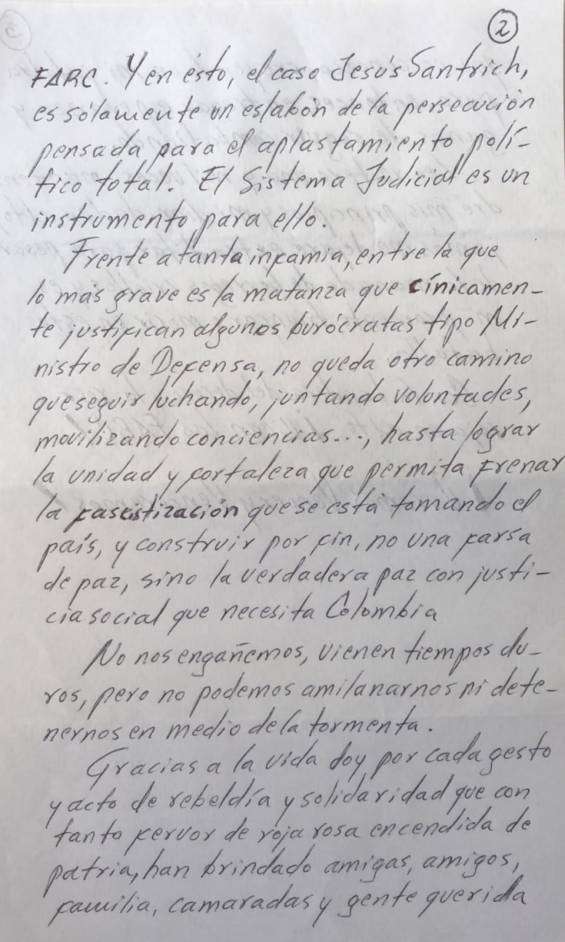 2
FARC. Y en ésto, el caso Jesús Santrich,
es sólamente un eslabón de la persecución
pensada para el aplastamiento polí-
tico total. El Sistema Judicial es un
instrumento para ello.
Frente a tanta infamia, entre la que
lo más grave es la matanza que cínicamen-
te justifican algunos burócratas tipo Mi-
nistro de Defensa, no queda otro camino
que seguir luchando, juntando voluntades,
movilizando conciencias..., hasta lograr
la unidad y fortaleza que permita frenar
la fascistización que se está tomando el
país, y construir por fin, no una farsa
de paz, sino la verdadera paz con justi-
cia social que necesita Colombia
No nos engañemos, vienen tiempos du-
ros, pero no podemos amilanarnos ni dete-
nernos en medio de la tormenta.
Gracias a la vida doy por cada gesto
y acto de rebeldía y solidaridad que con
tanto fervor de roja rosa encendida de
patria, han brindado amigas, amigos,
familia, camaradas y gente querida